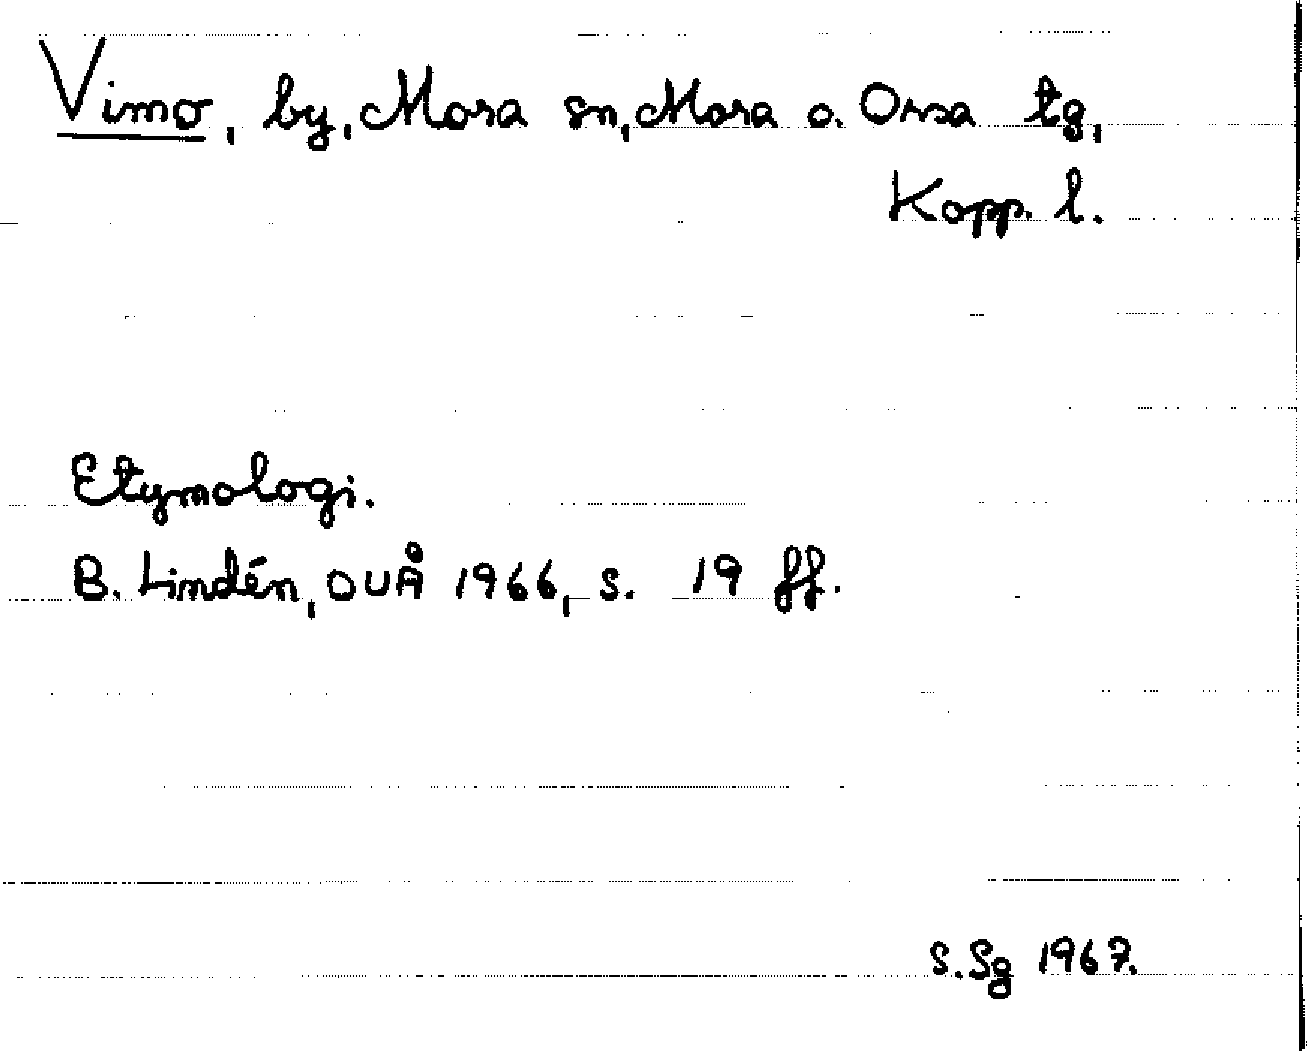 Vimo, by, Mora sn, Mora o. Orsa tg,
Kopp. l.
Etymologi.
B. Lindén, OUÅ 1966, s. 19 ff.
S.Sg 1967.